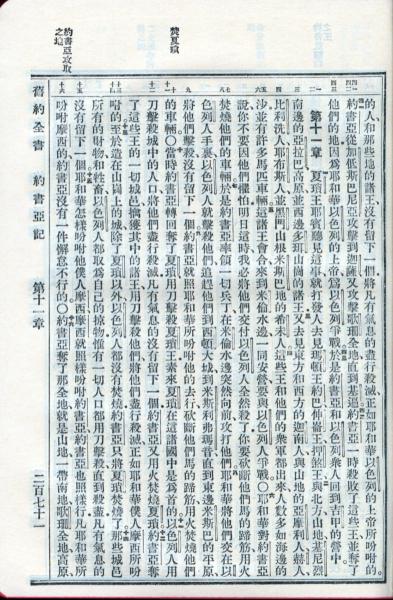 的人和那些地的諸王沒有留下一個將凡有氣息的盡行殺滅正如耶和華以色列的上帝所吩咐的
約書亞從加低斯巴尼亞攻擊到迦薩又攻擊歌珊全地直到基遍約書亞一時殺敗了這些王並奪了
他們的地因爲耶和華以色列的上帝爲以色列爭戰於是約書亞和以色列衆人回到吉甲的營中
第十一章 夏瑣王耶賓聽見這事就打發人去見瑪頓王約巴伸崙王押煞王與北方山地基尼烈
南邊的亞拉巴高原並西邊多珥山岡的諸王又去見東方和西方的迦南人與山地的亞摩利人赫人
比利洗人耶布斯人並黑門山根米斯巴地的希未人這些王和他們的衆軍都出來人數多如海邊的
沙並有許多馬匹車輛這諸王會合來到米倫水邊一同安營要與以色列人爭戰○耶和華對約書亞
說你不要因他們懼怕明日這時我必將他們交付以色列人全然殺了你要砍斷他們馬的蹄筋用火
焚燒他們的車輛於是約書亞率領一切兵丁在米倫水邊突然向前攻打他們耶和華將他們交在以
色列人手裏以色列人就擊殺他們追趕他們到西頓大城到米斯利弗瑪音直到東邊米斯巴的平原
將他們擊殺沒有留下一個約書亞就照耶和華所吩咐他的去行砍斷他們馬的蹄筋用火焚燒他們
的車輛○當時約書亞轉回奪了夏瑣用刀擊殺夏瑣王素來夏瑣在這諸國中是爲首的以色列人用
刀擊殺城中的人口將他們盡行殺滅凡有氣息的沒有留下一個約書亞又用火焚燒夏瑣約書亞奪
了這些王的一切城邑擒獲其中的諸王用刀擊殺他們將他們盡行殺滅正如耶和華僕人摩西所吩
咐的至於造在山岡上的城除了夏瑣以外以色列人都沒有焚燒約書亞只將夏瑣焚燒了那些城邑
所有的財物和牲畜以色列人都取爲自己的掠物惟有一切人口都用刀擊殺直到殺盡凡有氣息的
沒有留下一個耶和華怎樣吩咐他僕人摩西摩西就照樣吩咐約書亞約書亞也照樣行凡耶和華所
吩咐摩西的約書亞沒有一件懈怠不行的○約書亞奪了那全地就是山地一帶南地歌珊全地高原
焚夏瑣
約書亞攻取
之地
舊約全書 約書亞記 第十一章 二百七十一